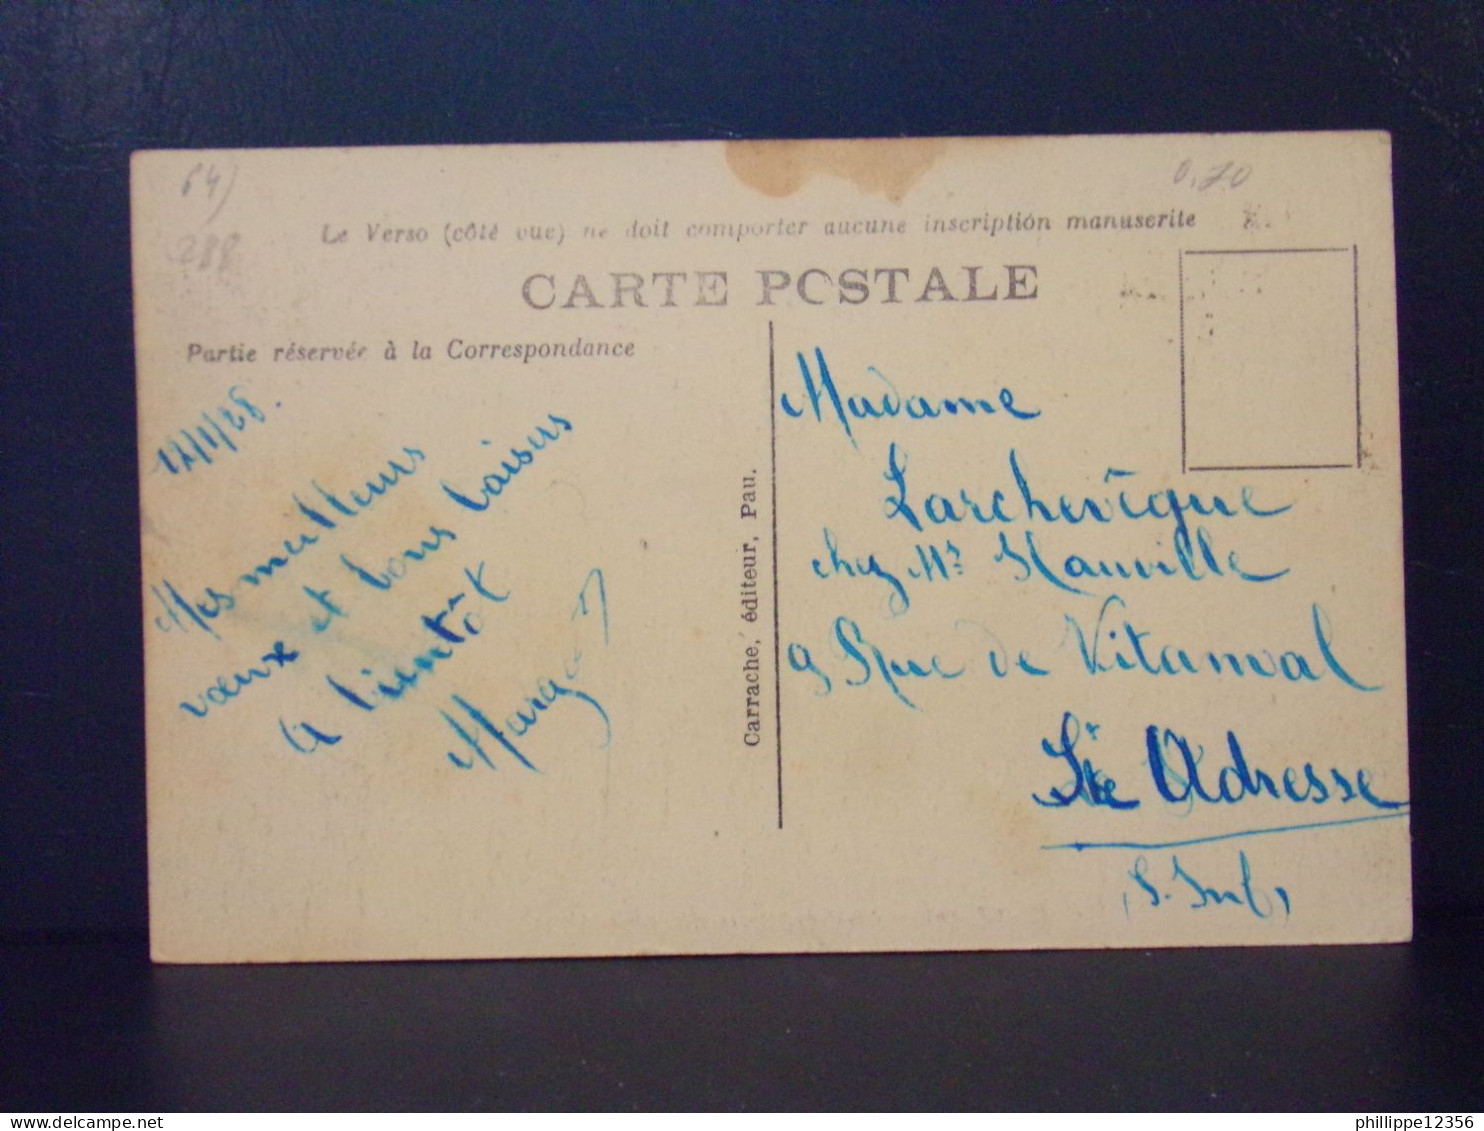 64)
288
0.70
Le Verso (côté vue) ne doit comporter aucune inscription manuscrite
CARTE POSTALE
Partie réservée à la Correspondance
12/1/28.
Mes meilleurs
vœux et bons baisers
a bientôt
Margot
Carrache, éditeur, Pau.
Madame
Larchevêque
chez Mr Hauville
9 Rue de Vitanval
Ste Adresse
S. Inf,
phillippe12356